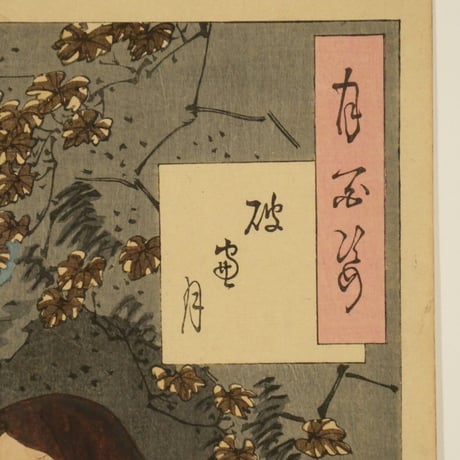 月百姿
破窗月